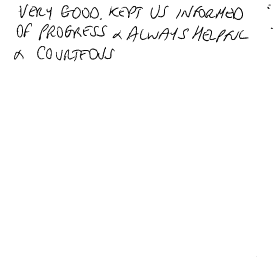 VERY GOOD. KEPT US INFORMED
OF PROGRESS & ALWAYS HELPFUL
& COURTEOUS